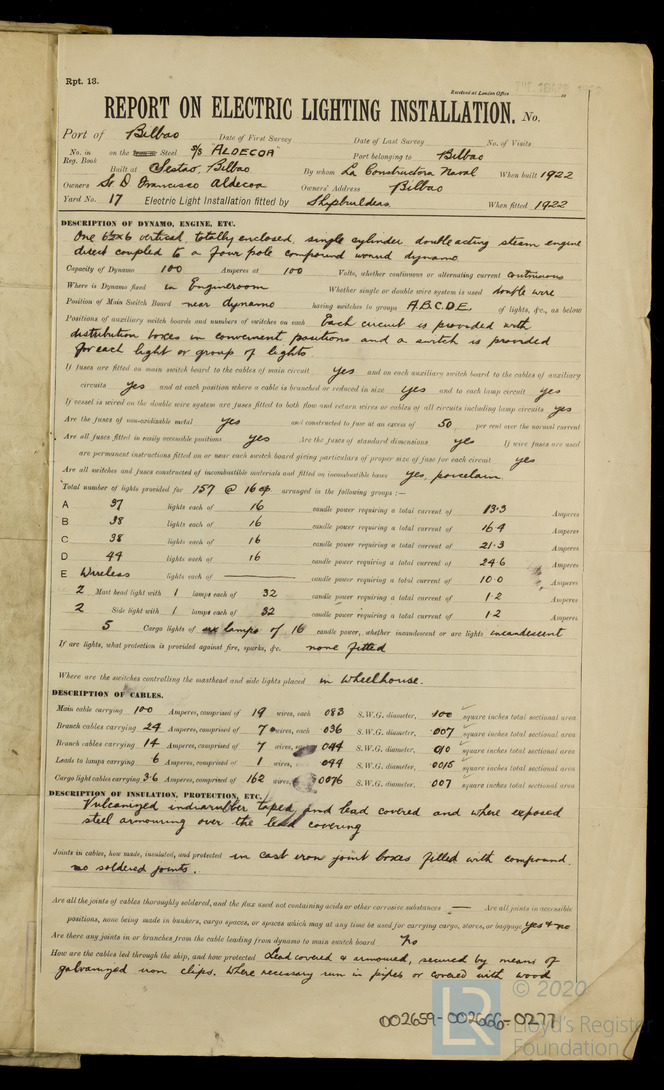 Rpt. 13.
Received at London Office
REPORT ON ELECTRIC LIGHTING INSTALLATION. No.
Port of Bilbao Date of First Survey Date of Last Survey No. of Visits
No. in Reg. Book on the Steel S/S "ALDECOA" Port belonging to Bilbao
Built at Sestao, Bilbao By whom La Constructora Naval When built 1922
Owners Sr. D. Francisco Aldecoa Owners' Address Bilbao
Yard No. 17 Electric Light Installation fitted by Shipbuilders When fitted 1922
DESCRIPTION OF DYNAMO, ENGINE, ETC.
One 6½x6 vertical, totally enclosed, single cylinder double acting steam engine
direct coupled to a four pole compound wound dynamo
Capacity of Dynamo 100 Amperes at 100 Volts, whether continuous or alternating current continuous
Where is Dynamo fixed in Engineroom Whether single or double wire system is used double wire
Position of Main Switch Board near dynamo having switches to groups A.B.C.D.E. of lights, &c., as below
Positions of auxiliary switch boards and numbers of switches on each Each circuit is provided with
distribution boxes in convenient positions and a switch is provided
for each light or group of lights
If fuses are fitted on main switch board to the cables of main circuit yes and on each auxiliary switch board to the cables of auxiliary
circuits yes and at each position where a cable is branched or reduced in size yes and to each lamp circuit yes
If vessel is wired on the double wire system are fuses fitted to both flow and return wires or cables of all circuits including lamp circuits yes
Are the fuses of non-oxidizable metal yes and constructed to fuse at an excess of 50 per cent over the normal current
Are all fuses fitted in easily accessible positions yes Are the fuses of standard dimensions yes If wire fuses are used
are permanent instructions fitted on or near each switch board giving particulars of proper size of fuse for each circuit yes
Are all switches and fuses constructed of incombustible materials and fitted on incombustible bases yes, porcelain
Total number of lights provided for 157 @ 16 cp arranged in the following groups :—
A 37 lights each of 16 candle power requiring a total current of 13.3 Amperes
B 38 lights each of 16 candle power requiring a total current of 16.4 Amperes
C 38 lights each of 16 candle power requiring a total current of 21.3 Amperes
D 44 lights each of 16 candle power requiring a total current of 24.6 Amperes
E Wireless lights each of — candle power requiring a total current of 10.0 Amperes
2 Mast head light with 1 lamps each of 32 candle power requiring a total current of 1.2 Amperes
2 Side light with 1 lamps each of 32 candle power requiring a total current of 1.2 Amperes
5 Cargo lights of six lamps of 16 candle power, whether incandescent or arc lights incandescent
If arc lights, what protection is provided against fire, sparks, &c. none fitted
Where are the switches controlling the masthead and side lights placed in wheelhouse.
DESCRIPTION OF CABLES.
Main cable carrying 100 Amperes, comprised of 19 wires, each 083 S.W.G. diameter, 100 square inches total sectional area
Branch cables carrying 24 Amperes, comprised of 7 wires, each 036 S.W.G. diameter, 007 square inches total sectional area
Branch cables carrying 14 Amperes, comprised of 7 wires, each 044 S.W.G. diameter, 010 square inches total sectional area
Leads to lamps carrying 6 Amperes, comprised of 1 wires, 044 S.W.G. diameter, 0015 square inches total sectional area
Cargo light cables carrying 3.6 Amperes, comprised of 162 wires, 0076 S.W.G. diameter, 007 square inches total sectional area
DESCRIPTION OF INSULATION, PROTECTION, ETC.
Vulcanized indiarubber taped and lead covered and where exposed
steel armouring over the lead covering
Joints in cables, how made, insulated, and protected in cast iron joint boxes filled with compound.
no soldered joints.
Are all the joints of cables thoroughly soldered, and the flux used not containing acids or other corrosive substances — Are all joints in accessible
positions, none being made in bunkers, cargo spaces, or spaces which may at any time be used for carrying cargo, stores, or baggage yes & no
Are there any joints in or branches from the cable leading from dynamo to main switch board no
How are the cables led through the ship, and how protected Lead covered & armoured, secured by means of
galvanized iron clips. Where necessary run in pipes or covered with wood
002659-002666-0277
LR
© 2020
Lloyd's Register
Foundation